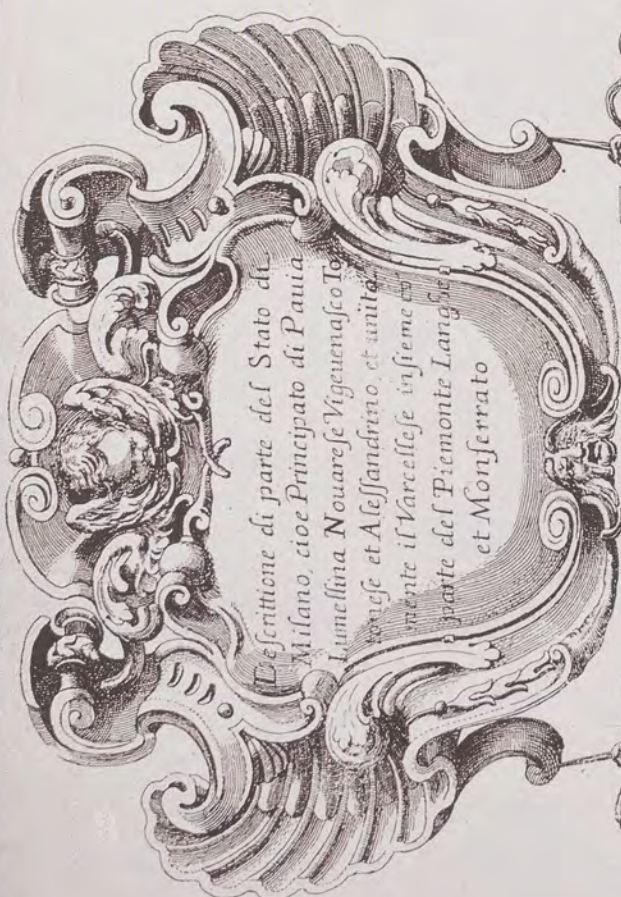 Descrittione di parte del Stato di
Milano, cioe Principato di Pauia
Lumellina Nouarese Vigeuenasco To
tonese et Alessandrino et unita
mente il Varcellese insieme co
parte del Piemonte Langhe
et Monferrato